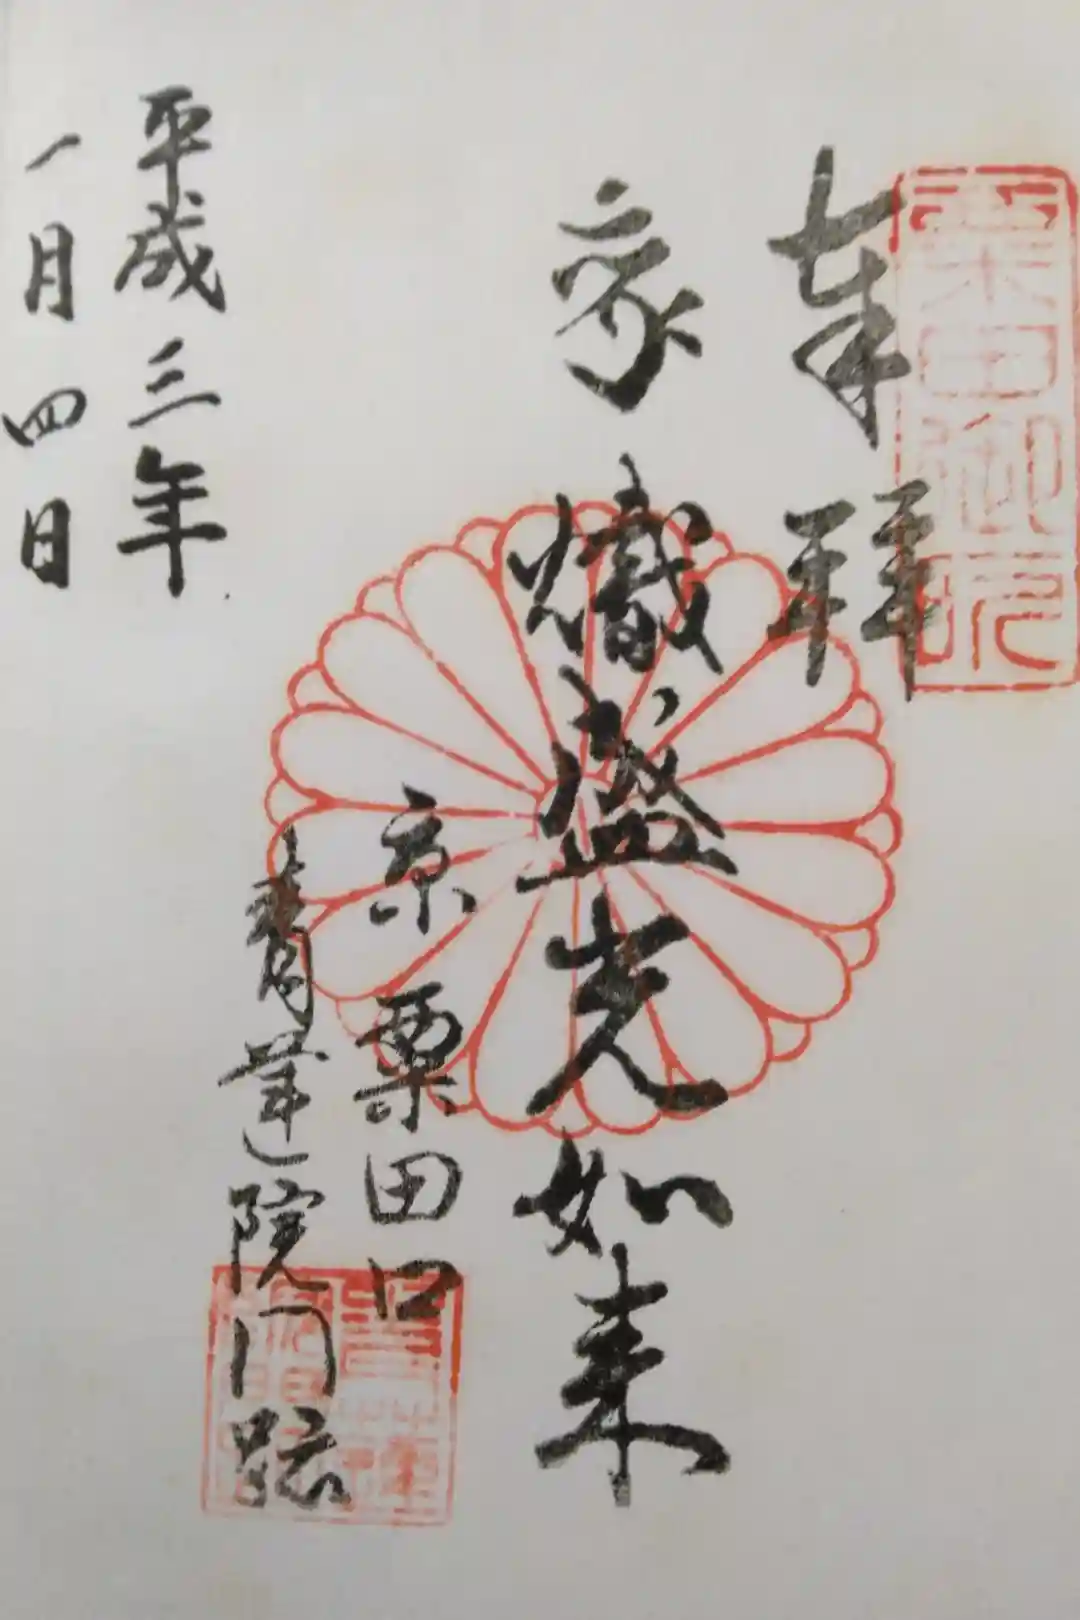 粟田御所
奉拝
熾盛光如来
京 粟田口
青蓮院門跡
平成三年
一月四日